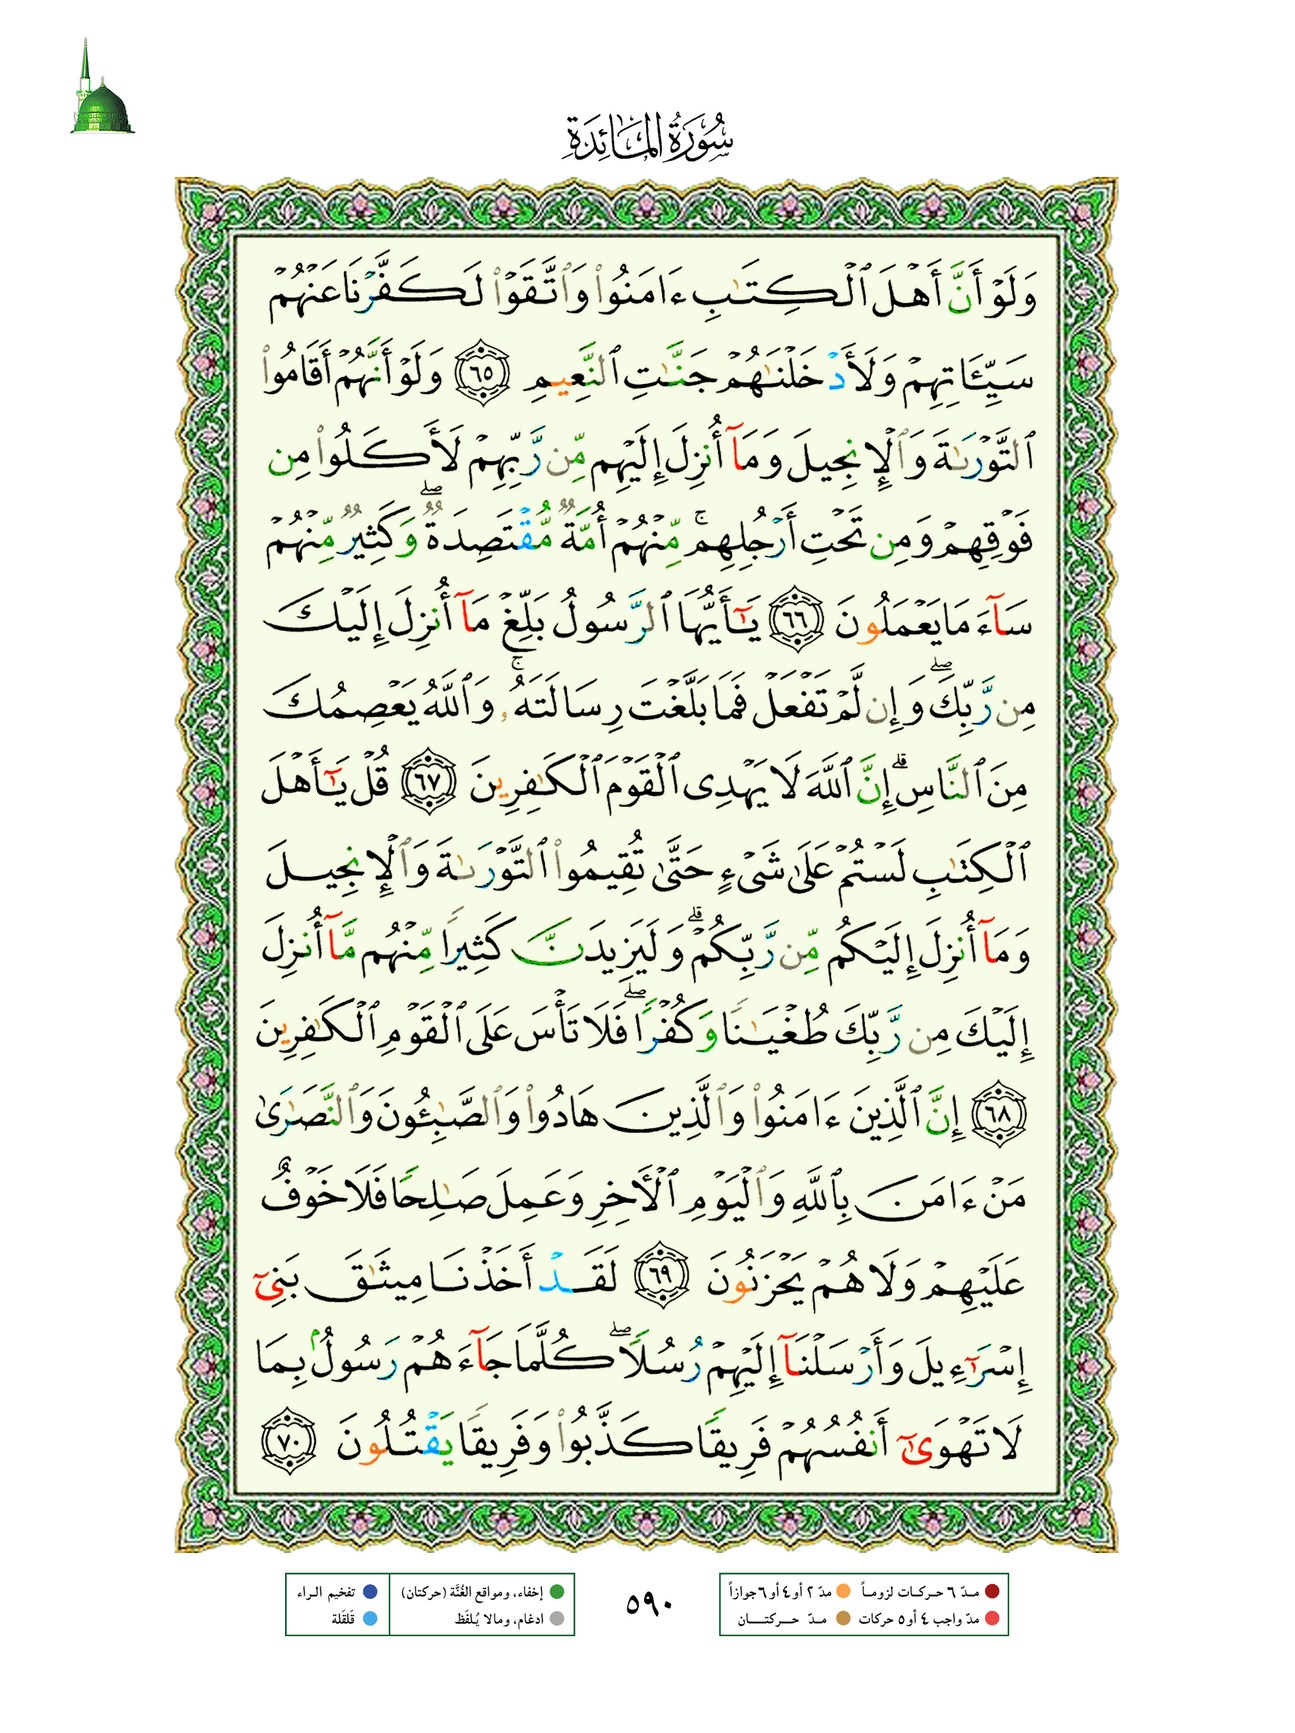 سُورَةُ المَائِدَةِ
وَلَوۡ أَنَّ أَهۡلَ ٱلۡكِتَٰبِ ءَامَنُواْ وَٱتَّقَوۡاْ لَكَفَّرۡنَا عَنۡهُمۡ
سَيِّـَٔاتِهِمۡ وَلَأَدۡخَلۡنَٰهُمۡ جَنَّٰتِ ٱلنَّعِيمِ ٦٥ وَلَوۡ أَنَّهُمۡ أَقَامُواْ
ٱلتَّوۡرَىٰةَ وَٱلۡإِنجِيلَ وَمَآ أُنزِلَ إِلَيۡهِم مِّن رَّبِّهِمۡ لَأَكَلُواْ مِن
فَوۡقِهِمۡ وَمِن تَحۡتِ أَرۡجُلِهِمۚ مِّنۡهُمۡ أُمَّةٞ مُّقۡتَصِدَةٞۖ وَكَثِيرٞ مِّنۡهُمۡ
سَآءَ مَا يَعۡمَلُونَ ٦٦ يَٰٓأَيُّهَا ٱلرَّسُولُ بَلِّغۡ مَآ أُنزِلَ إِلَيۡكَ
مِن رَّبِّكَۖ وَإِن لَّمۡ تَفۡعَلۡ فَمَا بَلَّغۡتَ رِسَالَتَهُۥۚ وَٱللَّهُ يَعۡصِمُكَ
مِنَ ٱلنَّاسِۗ إِنَّ ٱللَّهَ لَا يَهۡدِى ٱلۡقَوۡمَ ٱلۡكَٰفِرِينَ ٦٧ قُلۡ يَٰٓأَهۡلَ
ٱلۡكِتَٰبِ لَسۡتُمۡ عَلَىٰ شَىۡءٍ حَتَّىٰ تُقِيمُواْ ٱلتَّوۡرَىٰةَ وَٱلۡإِنجِيلَ
وَمَآ أُنزِلَ إِلَيۡكُم مِّن رَّبِّكُمۡۗ وَلَيَزِيدَنَّ كَثِيرٗا مِّنۡهُم مَّآ أُنزِلَ
إِلَيۡكَ مِن رَّبِّكَ طُغۡيَٰنٗا وَكُفۡرٗاۖ فَلَا تَأۡسَ عَلَى ٱلۡقَوۡمِ ٱلۡكَٰفِرِينَ
٦٨ إِنَّ ٱلَّذِينَ ءَامَنُواْ وَٱلَّذِينَ هَادُواْ وَٱلصَّٰبِـُٔونَ وَٱلنَّصَٰرَىٰ
مَنۡ ءَامَنَ بِٱللَّهِ وَٱلۡيَوۡمِ ٱلۡأٓخِرِ وَعَمِلَ صَٰلِحٗا فَلَا خَوۡفٌ
عَلَيۡهِمۡ وَلَا هُمۡ يَحۡزَنُونَ ٦٩ لَقَدۡ أَخَذۡنَا مِيثَٰقَ بَنِىٓ
إِسۡرَٰٓءِيلَ وَأَرۡسَلۡنَآ إِلَيۡهِمۡ رُسُلٗاۖ كُلَّمَا جَآءَهُمۡ رَسُولُۢ بِمَا
لَا تَهۡوَىٰٓ أَنفُسُهُمۡ فَرِيقٗا كَذَّبُواْ وَفَرِيقٗا يَقۡتُلُونَ ٧٠
مـدّ ٦ حـركـات لزومـاً مدّ ٢ أو ٤ أو ٦ جوازاً
مدّ واجب ٤ أو ٥ حركات مـدّ حـــركتـــــان
٥٩٠
إخفاء، ومواقع الغُنَّة (حركتان) تفخيم الراء
ادغام، ومالا يُـلفَظ قلقَلة